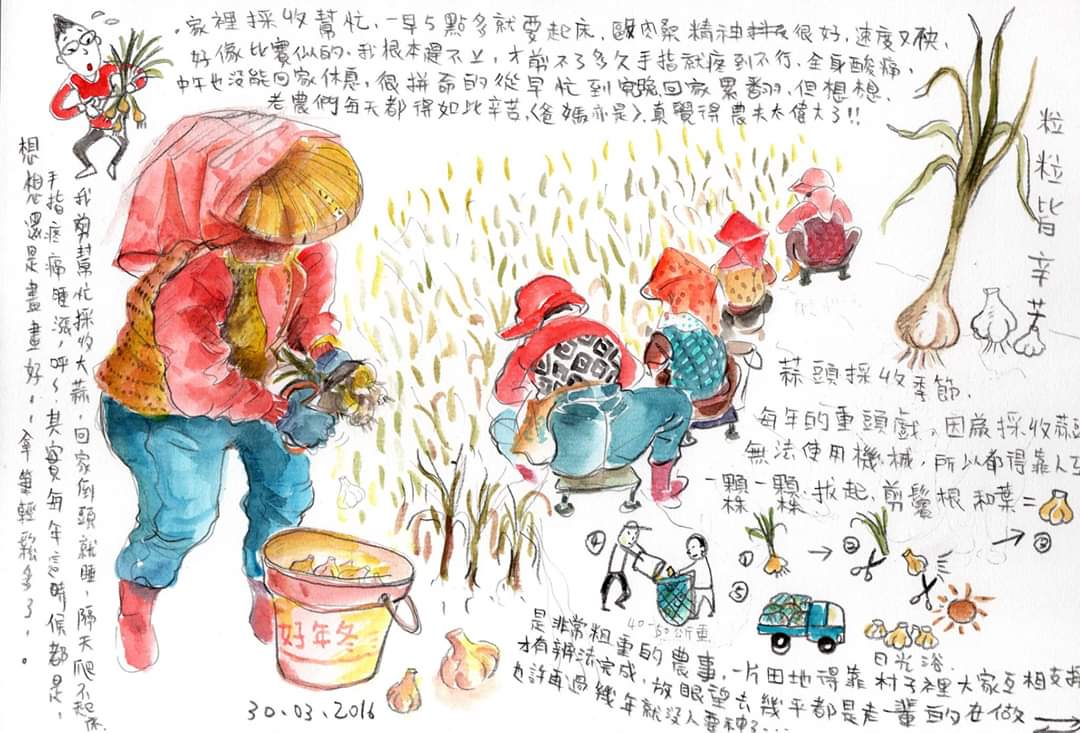 家裡採收幫忙,一早5點多就要起床,歐肉桑精神很好,速度又快,
好像比賽似的,我根本不上,才剪不了多久手指就疼到不行,全身酸痛,
中午也沒能回家休息,很拼命的從早忙到晚回家累翻,但想想,
老農們每天都得如此辛苦,(爸媽亦是)真覺得農夫太偉大了!!
粒粒皆辛苦
我剪幫忙採收大蒜,回家倒頭就睡,隔天爬不起床
手指疼痛腫濕,呼~其實每年這時候都是,
想想還是畫畫好,,拿筆輕鬆多了,。
蒜頭採收季節.
每年的重頭戲,因為採收蒜頭
無法使用機械,所以都得靠人工
一顆一顆拔起,剪鬚根和葉=
株 株
① → ② → ③
④
⑤
40-50公斤重
日光浴.
好年冬
是非常粗重的農事,一片田地得靠村子裡大家互相支持
才有辦法完成,放眼望去幾乎都是老一輩的在做
也許再過幾年就沒人要種了...
30.03.2016